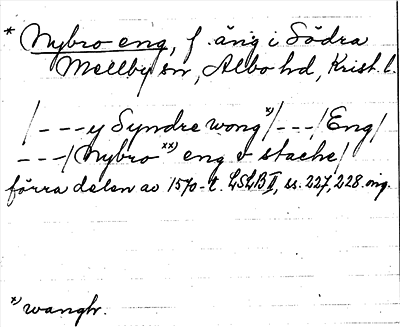 * Nybro eng, f. äng i Södra
Mellby sn, Albo hd, Krist. l.
/---y Syndre wong x)/---/Eng/
---/Nybro xx) eng v stache/
förra delen av 1570-t. LSLB II, ss. 227, 228. orig.
x) wanghr.